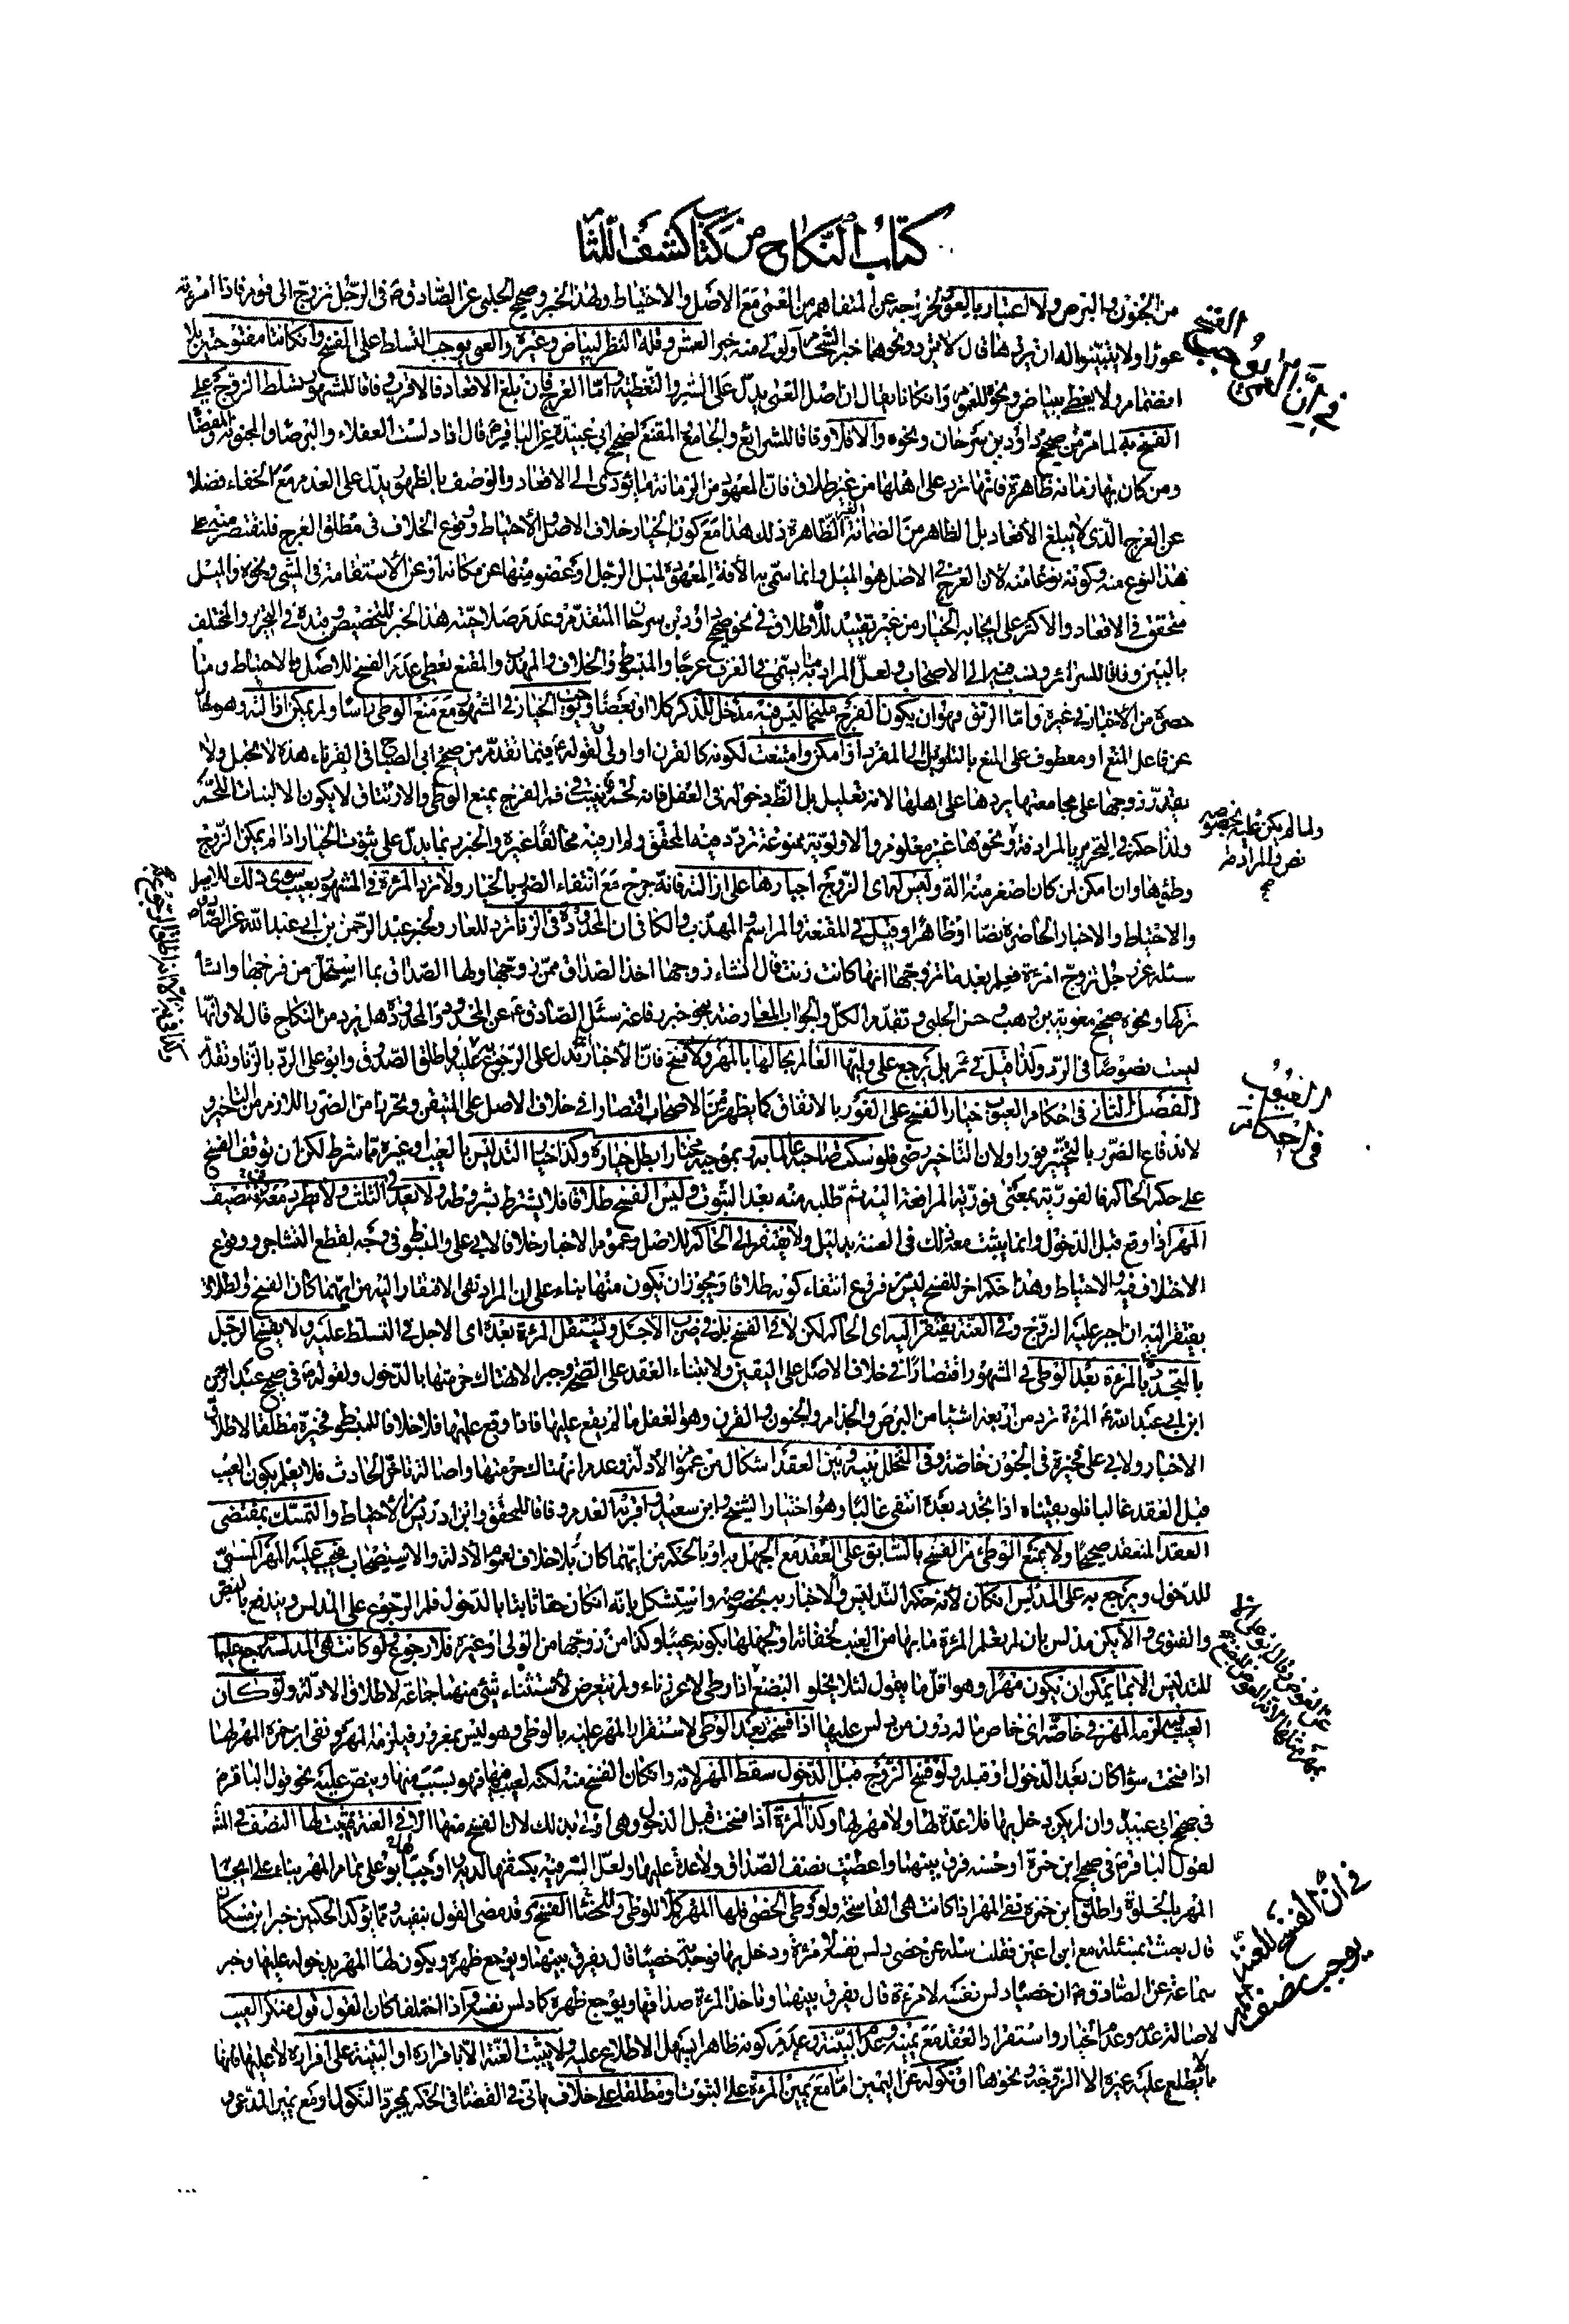 كتاب النكاح من كتاب كشف اللثام
من الجنون والبرص ولا اعتبار بالعور لخروجه عن المتفاهم من العمى مع الاصل والاحتياط ولهذا الخبر وصحيح الحلبي عن الصادق ع في الرجل تزوج الى قوم فاذا امرئته
عوراء ولم يبينوا له ان يردها قال لا ترد ونحوهما خبر الشحام واولى منه خبر العمش وقلة النظر لبياض وغيره والعمى يوجب التسلط على الفسخ وان كانتا مفتوحتين بلا
الفسخ به لما مر من صحيح داود بن سرحان ونحوه والا فلا وفاقا للشرائع والجامع والمقنع لصحيح ابي عبيدة عن الباقر ع قال اذا دلست العفلاء والبرصاء والمجنونة والمفضاة
ومن كان بها زمانة ظاهرة فانها ترد على اهلها من غير طلاق فان المعهود من الزمانة ما يؤدى الى الاقعاد والوصف بالظهور يدل على العدم مع الخفاء فضلا
عن العرج الذى لا يبلغ الاقعاد بل الظاهر من الضمانة الظاهرة ذلك هذا مع كون الخيار خلاف الاصل والاحتياط ووقوع الخلاف في مطلق العرج فلنقتصر منه على
هذا النوع منه وكونه نوعا منه لان العرج في الاصل هو الميل وانما سمى به الافة المعهودة لميل الرجل او عضو منها عن مكانه او عن الاستقامة في المشى ونحوه والميل
متحقق في الاقعاد والاكثر على ايجابه الخيار من غير تقييد للاطلاق في نحو صحيح داود بن سرحان المتقدم وعدم صلاحية هذا الخبر للتخصيص وقيده في التحرير والمختلف
بالبين وفاقا للسرائر ونسب فيه الى الاصحاب ولعل المراد به ما يسمى في العرف عرجا والمبسوط والخلاف والمهذب والمقنع يعطى عدم الفسخ للاصل والاحتياط وما
حصره من الاخبار في غيره واما الرتق فهو ان يكون الفرج ملتحما ليس فيه مدخل للذكر كلا او بعضا ويوجب الخيار في المشهور مع منع الوطى راسا ولم يمكن ازالته وهو
عن فاعل المنع او معطوف على المنع بالتاويل الى المفرد او امكن وامتنعت لكونه كالقرن او اولى لقوله ع فيما تقدم من صحيح ابي الصباح في القرناء هذه لا تحبل ولا
يقدر زوجها على مجامعتها يردها على اهلها لانه تعليل بل الظاهر دخوله في العفل فانه لحمة تنبت في فم الفرج يمنع الوطى والارتتاق لا يكون الا لنبات اللحم
ولذا حكم في التحرير بالمرادفة ونحوها غير معلوم والاولوية ممنوعة تردد فيه المحقق ولم ار فيه مخالفا غيره والخبر ربما يدل على ثبوت الخيار اذا لم يمكن الزوج
وطؤها وان امكن لمن كان اصغر منه الة وليس له اى الزوج اجبارها على ازالته فانه جرح مع انتفاء الضرر بالخيار ولا ترد المرئة في المشهور بعيب سوى ذلك للاصل
والاحتياط والاخبار الحاضرة نصا او ظاهرا وقيل في المقنعة والمراسم والمهذب والكافي ان المحدودة في الزنا ترد للعار ولخبر عبد الرحمن بن ابي عبد الله عن الصادق ع
سئله عن رجل تزوج امرئة فعلم بعد ما تزوجها انها كانت زنت قال ان شاء زوجها اخذ الصداق ممن زوجها ولها الصداق بما استحل من فرجها وان شاء
تركها ونحوه صحيح معوية بن وهب وحسن الحلبي وتقدم الكل والجواب المعارضة بنحو خبر رفاعة سئل الصادق ع عن المحدود والمحدودة هل ترد من النكاح قال لا وانها
ليست نصوصا في الرد ولذا قيل في ئر بل يرجع على وليها العالم بحالها بالمهر ولا فسخ فان الاخبار تدل على الرجوع عليه واطلق الصدوق وابو على الرد بالزنا وتقدم
الفصل الثاني في احكام العيوب خيار الفسخ على الفور بالاتفاق كما يظهر من الاصحاب اقتصارا في خلاف الاصل على المتيقن وتحرزا من الضرر اللازم من التاخير و
لاندفاع الضرر بالتخيير فورا ولان التاخير رضى فلو سكت صاحبه عالما به وبموجبه مختارا بطل خياره وكذا خيار التدليس بالعيب او غيره مما شرط لكن ان توقف الفسخ
على حكم الحاكم فالفورية بمعنى فورية المرافعة اليه ثم طلبه منه بعد الثبوت وليس الفسخ طلاقا فلا يشترط بشروطه ولا يعد في الثلث ولا يطرد معه تنصيف
المهر اذا وقع قبل الدخول وانما يثبت معه ذلك في العنة بدليل ولا يفتقر الى الحاكم للاصل وعموم الاخبار خلافا لابي على والمبسوط في وجه لقطع التشاجر ووقوع
الاختلاف فيه والاحتياط وهذا حكم اخر للفسخ ليس من فروع انتفاء كونه طلاقا ويجوز ان يكون منها بناء على ان المراد نفى الافتقار اليه من ايهما كان الفسخ والطلاق
يفتقر اليه ان اجبر عليه الزوج وفي العنة يفتقر اليه اى الحاكم لكن لا في الفسخ بل في ضرب الاجل وتستقل المرئة بعده اى الاجل في التسلط عليه ولا يفسخ الرجل
بالمتجدد بالمرئة بعد الوطى في المشهور اقتصارا في خلاف الاصل على اليقين ولابتناء العقد على الصحة وجبرا لانهتاك حرمتها بالدخول ولقوله ع في صحيح عبد الرحمن
ابن ابي عبد الله ع المرئة ترد من اربعة اشياء من البرص والجذام والجنون والقرن وهو العفل ما لم يقع عليها فاذا وقع عليها فلا خلافا للمبسوط فخيره مطلقا لاطلاق
الاخبار ولابي على فخيره في الجنون خاصة وفي المتخلل بينه وبين العقد اشكال من عموم الادلة وعدم انهتاك حرمتها واصالة تاخر الحادث فلا يعلم بكون العيب
قبل العقد غالبا فلو بقيناه اذا تجدد بعده انتفى غالبا وهو اختيار الشيخ وابن سعيد واقربه العدم وفاقا للمحقق وابن ادريس للاحتياط والتمسك بمقتضى
العقد المنعقد صحيحا ولا يمنع الوطئ من الفسخ بالسابق على العقد مع الجهل به او بالحكم من ايهما كان بلا خلاف لعموم الادلة والاستصحاب فيجب عليه المهر المسمى
للدخول ويرجع به على المدلس ان كان لانه حكم التدليس والاخبار به بخصوصه واستشكل بانه ان كان حقا ثابتا بالدخول فلم الرجوع على المدلس ويندفع بالنص
والفتوى والا يكن مدلس بان لم يعلم المرئة ما بها من العيب لخفائه او لجهلها بكونه عيبا وكذا من زوجها من الولى او غيره فلا رجوع ولو كانت هى المدلسة رجع عليها
للتدليس الا بما يمكن ان يكون مهرا وهو اقل ما يتمول لئلا يخلو البضع اذا وطى لا عن زناء ولم يتعرض لاستثناء شئ منها جماعة لاطلاق الادلة ولو كان
العيب به لزمه المهر في خاصة اى خاص ماله دون من يدلس عليها اذا فسخت بعد الوطى لاستقرار المهر عليه بالوطى وهو ليس بمغرور فيلزمه المهر ونفى ابن حمزة المهر لها
اذا فسخت سواء كان بعد الدخول او قبله ولو فسخ الزوج قبل الدخول سقط المهر لانه وان كان الفسخ منه لكنه لعيب فيها فهو بسبب منها وينص عليه نحو قول الباقر ع
في صحيح ابي عبيدة وان لم يكن دخل بها فلا عدة لها ولا مهر لها وكذا المرئة اذا فسخت قبل الدخول وهى اولى بذلك لان الفسخ منها الا في العنة فيثبت لها النصف في المشهور
لقول الباقر ع في صحيح ابن حمزة او حسنه فرق بينهما واعطيت نصف الصداق ولا عدة عليها ولعل السر فيه يكشفها لديه واوجب ابو على تمام المهر بناء على ايجاب
المهر بالخلوة واطلق ابن حمزة نفى المهر اذا كانت هى الفاسخة ولو وطى الخصى فلها المهر كملا للوطى وللخصاء الفسخ وقد مضى القول بنفيه ومما يؤكد الحكمين خبر ابن مسكان
قال بعثت بمسئلة مع ابن اعين فقلت سله عن خصى دلس نفسه لامرئة ودخل بها فوجدته خصيا قال يفرق بينهما ويوجع ظهره ويكون لها المهر بدخوله عليها وخبر
سماعة عن الصادق ع ان خصيا دلس نفسه لامرئة قال يفرق بينهما وتاخذ المرئة صداقها ويوجع ظهره كما دلس نفسه واذا اختلفا كان القول قول منكر العيب
لاصالة عدمه وعدم الخيار واستقرار العقد مع يمينه وعدم البينة وعدم كونه ظاهرا يسهل الاطلاع عليه ولا يثبت العنة الا باقراره او البينة على اقراره لا عليها فانها
ما لا يطلع عليه غيره الا الزوجة ونحوها او نكوله عن اليمين اما مع يمين المرئة على الثبوت او مطلقا على خلاف ياتى في القضاء في الحكم بمجرد النكول او مع يمين المدعى و
في ان العمى يوجب الفسخ
ولما لم يكن عليه بخصوصه
نص والمرادفة
العيوب
في احكام
في ان الفسخ للعنة
يوجب نصف المهر